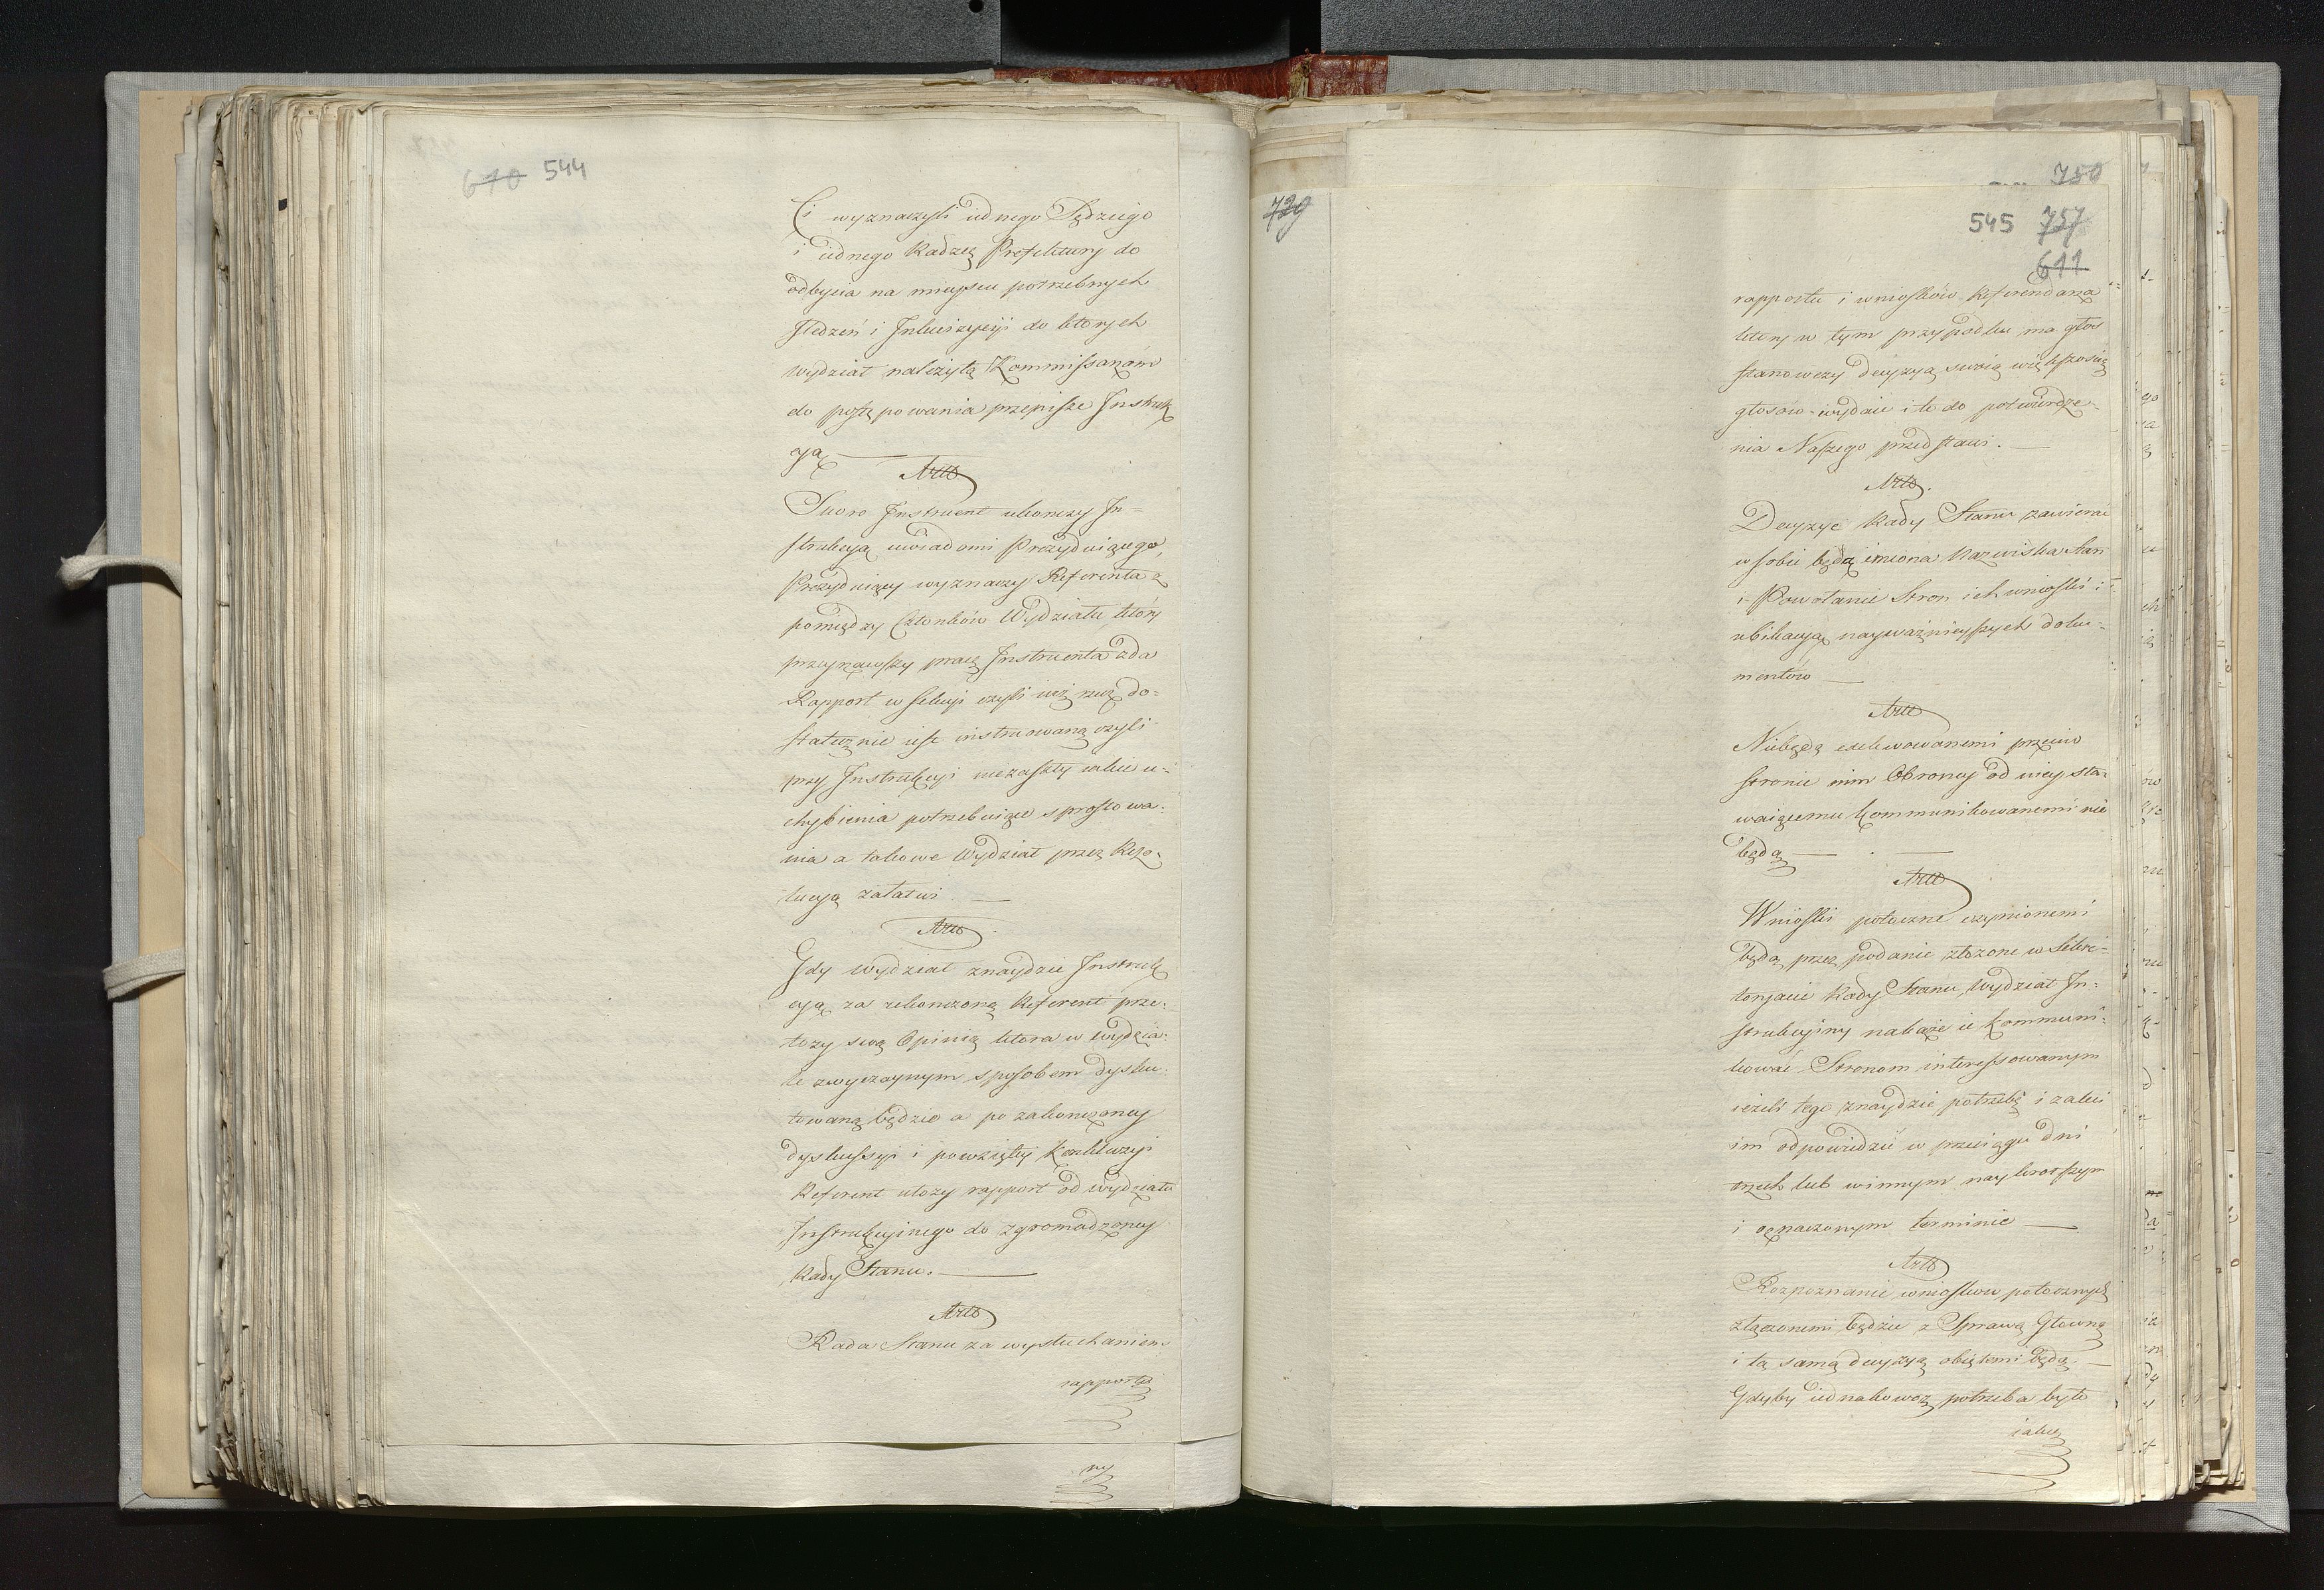 610 544
Ci wyznaczyli iednego Sędziego
i iednego Radzcę Prefektury do
odbycia na mieyscu potrzebnych
śledzeń i Inkwizycyi do ktorych
wydział należytą Kommissarzom
do postępowania przepisze Instruk
cyą
Artt
Skoro Instruent ukonczy In=
strukcyą uwiadomi Prezyduiącego,
Prezyduiący wyznaczy Referenta z
pomiędzy Członków Wydziału który
przeyrzawszy pracę Instruenta zda
Rapport w sekcyi czyli iuż rzecz do=
statecznie iest instruowaną czyli
przy Instrukcyi niezaszły iakie u=
chybienia potrzebuiące sprostowa=
nia a takowe Wydział przez Rezo=
lucyą załatwi.
Artt
Gdy wydział znaydzie Instruk
cyą za ukonczoną Referent prze=
łoży swą Opinią ktora w wydzia=
le zwyczaynym sposobem dysku=
towaną będzie a po zakonczoney
dyskussyi i powziętey Konkluzyi
Referent ułoży rapport od wydziału
Instrukcyinego do zgromadzoney
Rady Stanu.
Artt
Rada Stanu za wysłuchaniem
rapportu
ny
729
750
545 757
611
rapportu i wniosków Referendarza
ktory w tym przypadku ma głos
stanowczy decyzyą swoią większością
głosów wydaie i te do potwierdze=
nia Naszego przedstawi.
Artt.
Decyzye Rady Stanu zawierać
w sobie będą imiona Nazwiska Stan
i Powołanie Stron ich wnioski i
ubikacyą nayważnieyszych doku=
mentów
Artt
Niebędą exekwowanemi przeciw
stronie nim Obroncy od niey sta=
waiącemu Kommunikowanemi nie
będą
Artt
Wnioski potoczne czynionemi
będą przez podanie złożone w Sekre=
toryacie Rady Stanu, Wydział In=
strukcyiny nakaże ie Kommuni=
kować Stronom interessowanym
ieżeli tego znaydzie potrzebę i zaleci
im odpowiedzieć w przeciągu dni
trzech lub w innym naykrotszym
i oznaczonym terminie
Artt
Rozpoznanie wniosków potocznych
złączonemi będzie z Sprawą Głowną
i tą samą decyzyą obiętemi będą.
Gdyby iednakowoż potrzeba było
iakie